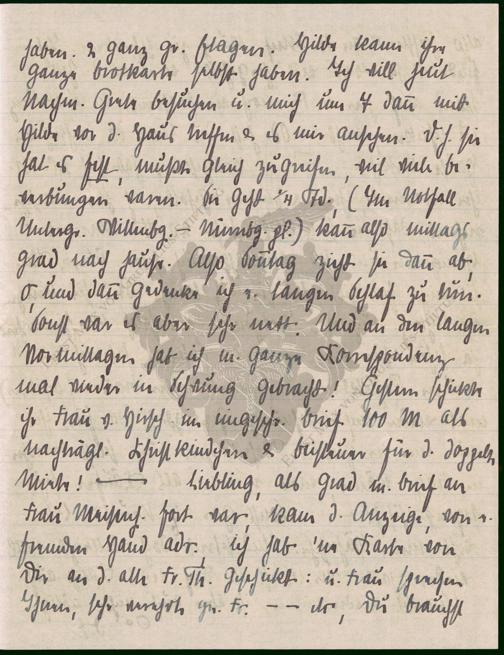 haben. 2 ganz gr. Etagen. Hilde kann ihre
ganze Brotkarte selbst haben. Ich will heut
Nachm. Grete besuchen u. mich um 7 dann mit
Hilde vor d. Haus treffen & es mir ansehen. D.h. sie
hat es fest, mußte gleich zugreifen, weil viele Be-
werbungen waren. Sie geht 1/4 Std. (Im Notfall
Untergr. Wittenbg. – Nürnbg. Pl.) kann also mittags
grad nach Hause. Also Sonntag zieht sie dann ab,
und dann gedenke ich e. langen Schlaf zu tun.
Sonst war es aber sehr nett. Und an den langen
Vormittagen hab ich m. ganze Korrespondenz
mal wieder in Schwung gebracht! Gestern schickte
ihr Frau v. Hirsch im eingeschr. Brief 100 M als
nachträgl. Christkindchen & Beisteuer für d. doppelte
Miete! — Liebling, als grad m. Brief an
Frau fort war, kam d. Anzeige von e.
fremden Hand adr., ich hab 'ne Karte von
Dir an d. alte Fr. Th. geschickt: u. Frau sprechen
Ihnen, sehr verehrte gn. Fr. – – etc, Du brauchst